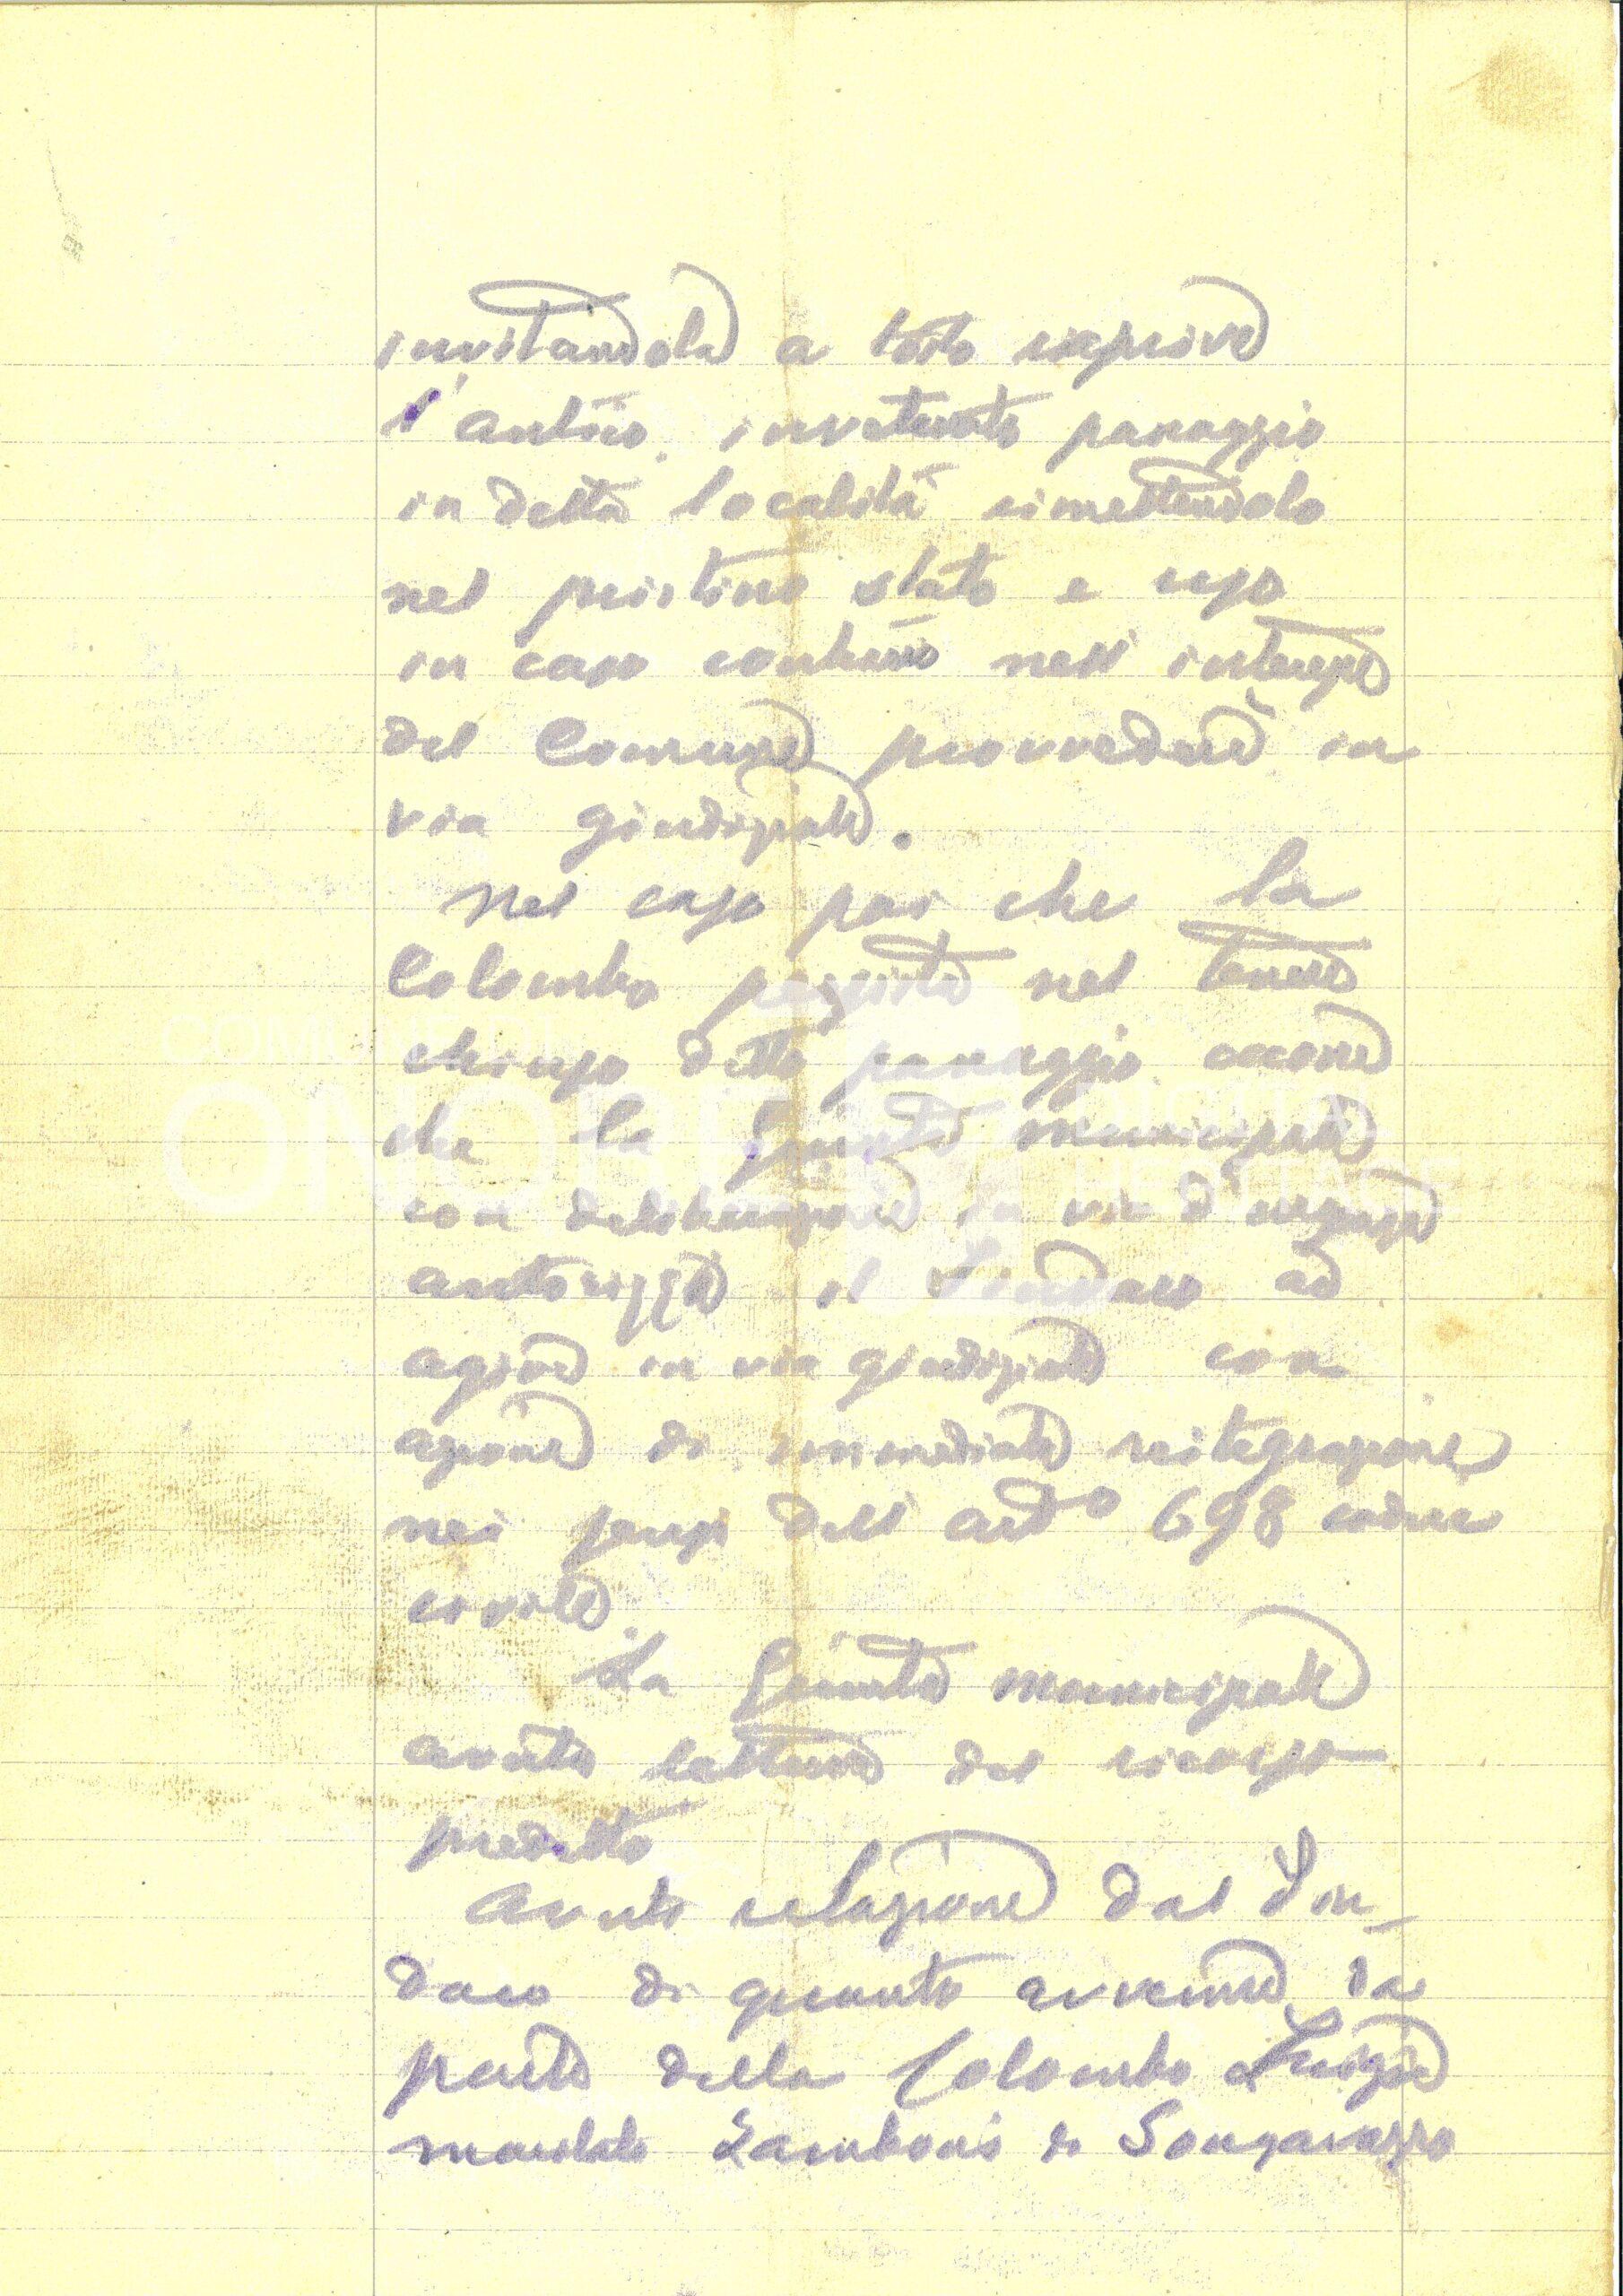 invitandola a tosto riaprire
l'antico inveterato passaggio
in detta località rimettendolo
nel pristino stato e uso
in caso contrario nell'interesse
del Comune provvederà in
via giudiziale.
Nel caso poi che la
Colombo persista nel tenere
chiuso detto passaggio occorre
che la Giunta municipale
con deliberazione in via d'urgenza
autorizzi il Sindaco ad
agire in via giudiziale con
azione di immediata reitegrazione
nei sensi dell'art.o 698 codice
civile.
La Giunta municipale
avuto lettura del ricorso
predetto
Avuto relazione dal Sin-
daco di quanto avvenne da
parte della Colombo Luigia
maritata Zamboni di Songavazzo
COMUNE DI
ONORE
DIGITAL
HERITAGE